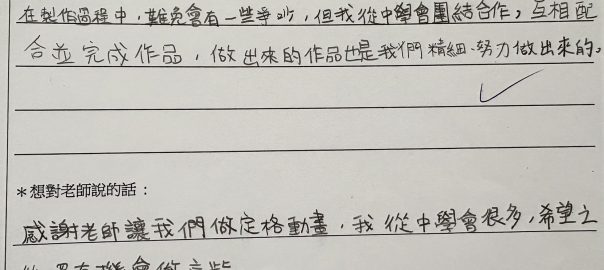 在製作過程中，難免會有一些爭吵，但我從中學會團結合作，互相配
合並完成作品，做出來的作品也是我們精細、努力做出來的。
＊想對老師說的話：
感謝老師讓我們做定格動畫，我從中學會很多，希望之
機會做